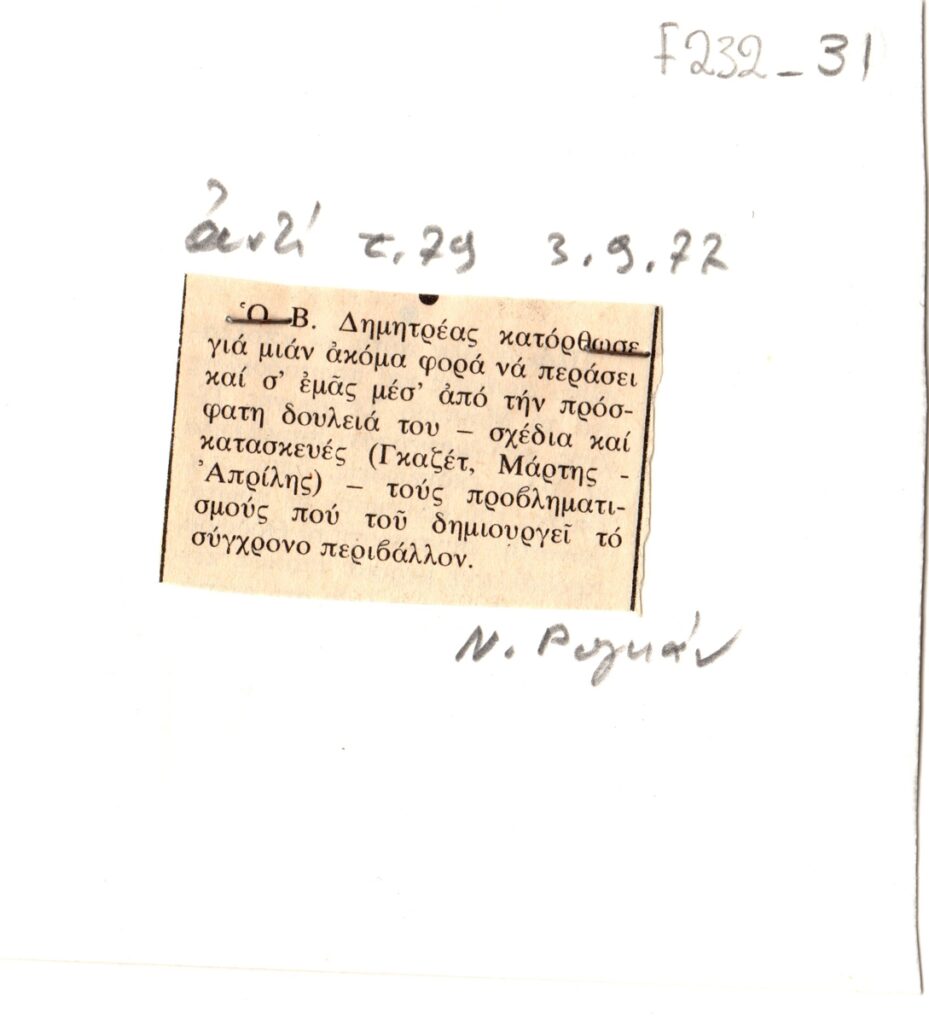 F232_31
ἀντί τ. 79 3.9.77
Ὁ Β. Δημητρέας κατόρθωσε
γιά μιάν ἀκόμα φορά νά περάσει
καί σ' ἐμᾶς μέσ' ἀπό τήν πρόσ-
φατη δουλειά του – σχέδια καί
κατασκευές (Γκαζέτ, Μάρτης -
Ἀπρίλης) – τούς προβληματι-
σμούς πού τοῦ δημιουργεῖ τό
σύγχρονο περιβάλλον.
Ν.